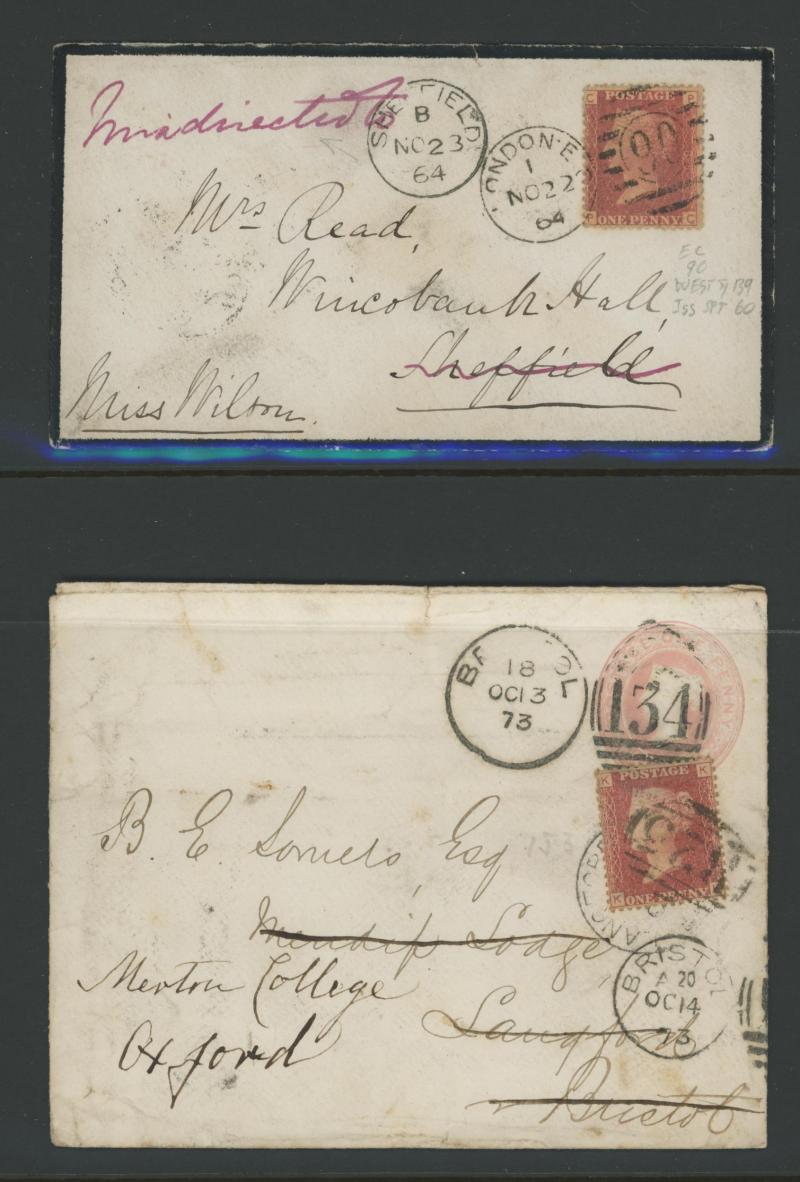 Misdirected
SHEFFIELD
B
NO23
64
LONDON·E
1
NO22
64
C POSTAGE P
90
P ONE PENNY C
Mrs Read,
Wincobank Hall,
Sheffield
Miss Wilson.
EC
90
WEST
139
Iss SPT 60
BRISTOL
18
OC13
73
134
PENNY
K POSTAGE K
K ONE PENNY K
B. E. Somers, Esq
Mendip Lodge,
Langford
Bristol
Merton College
Oxford
BRISTOL
A 20
OC14
73